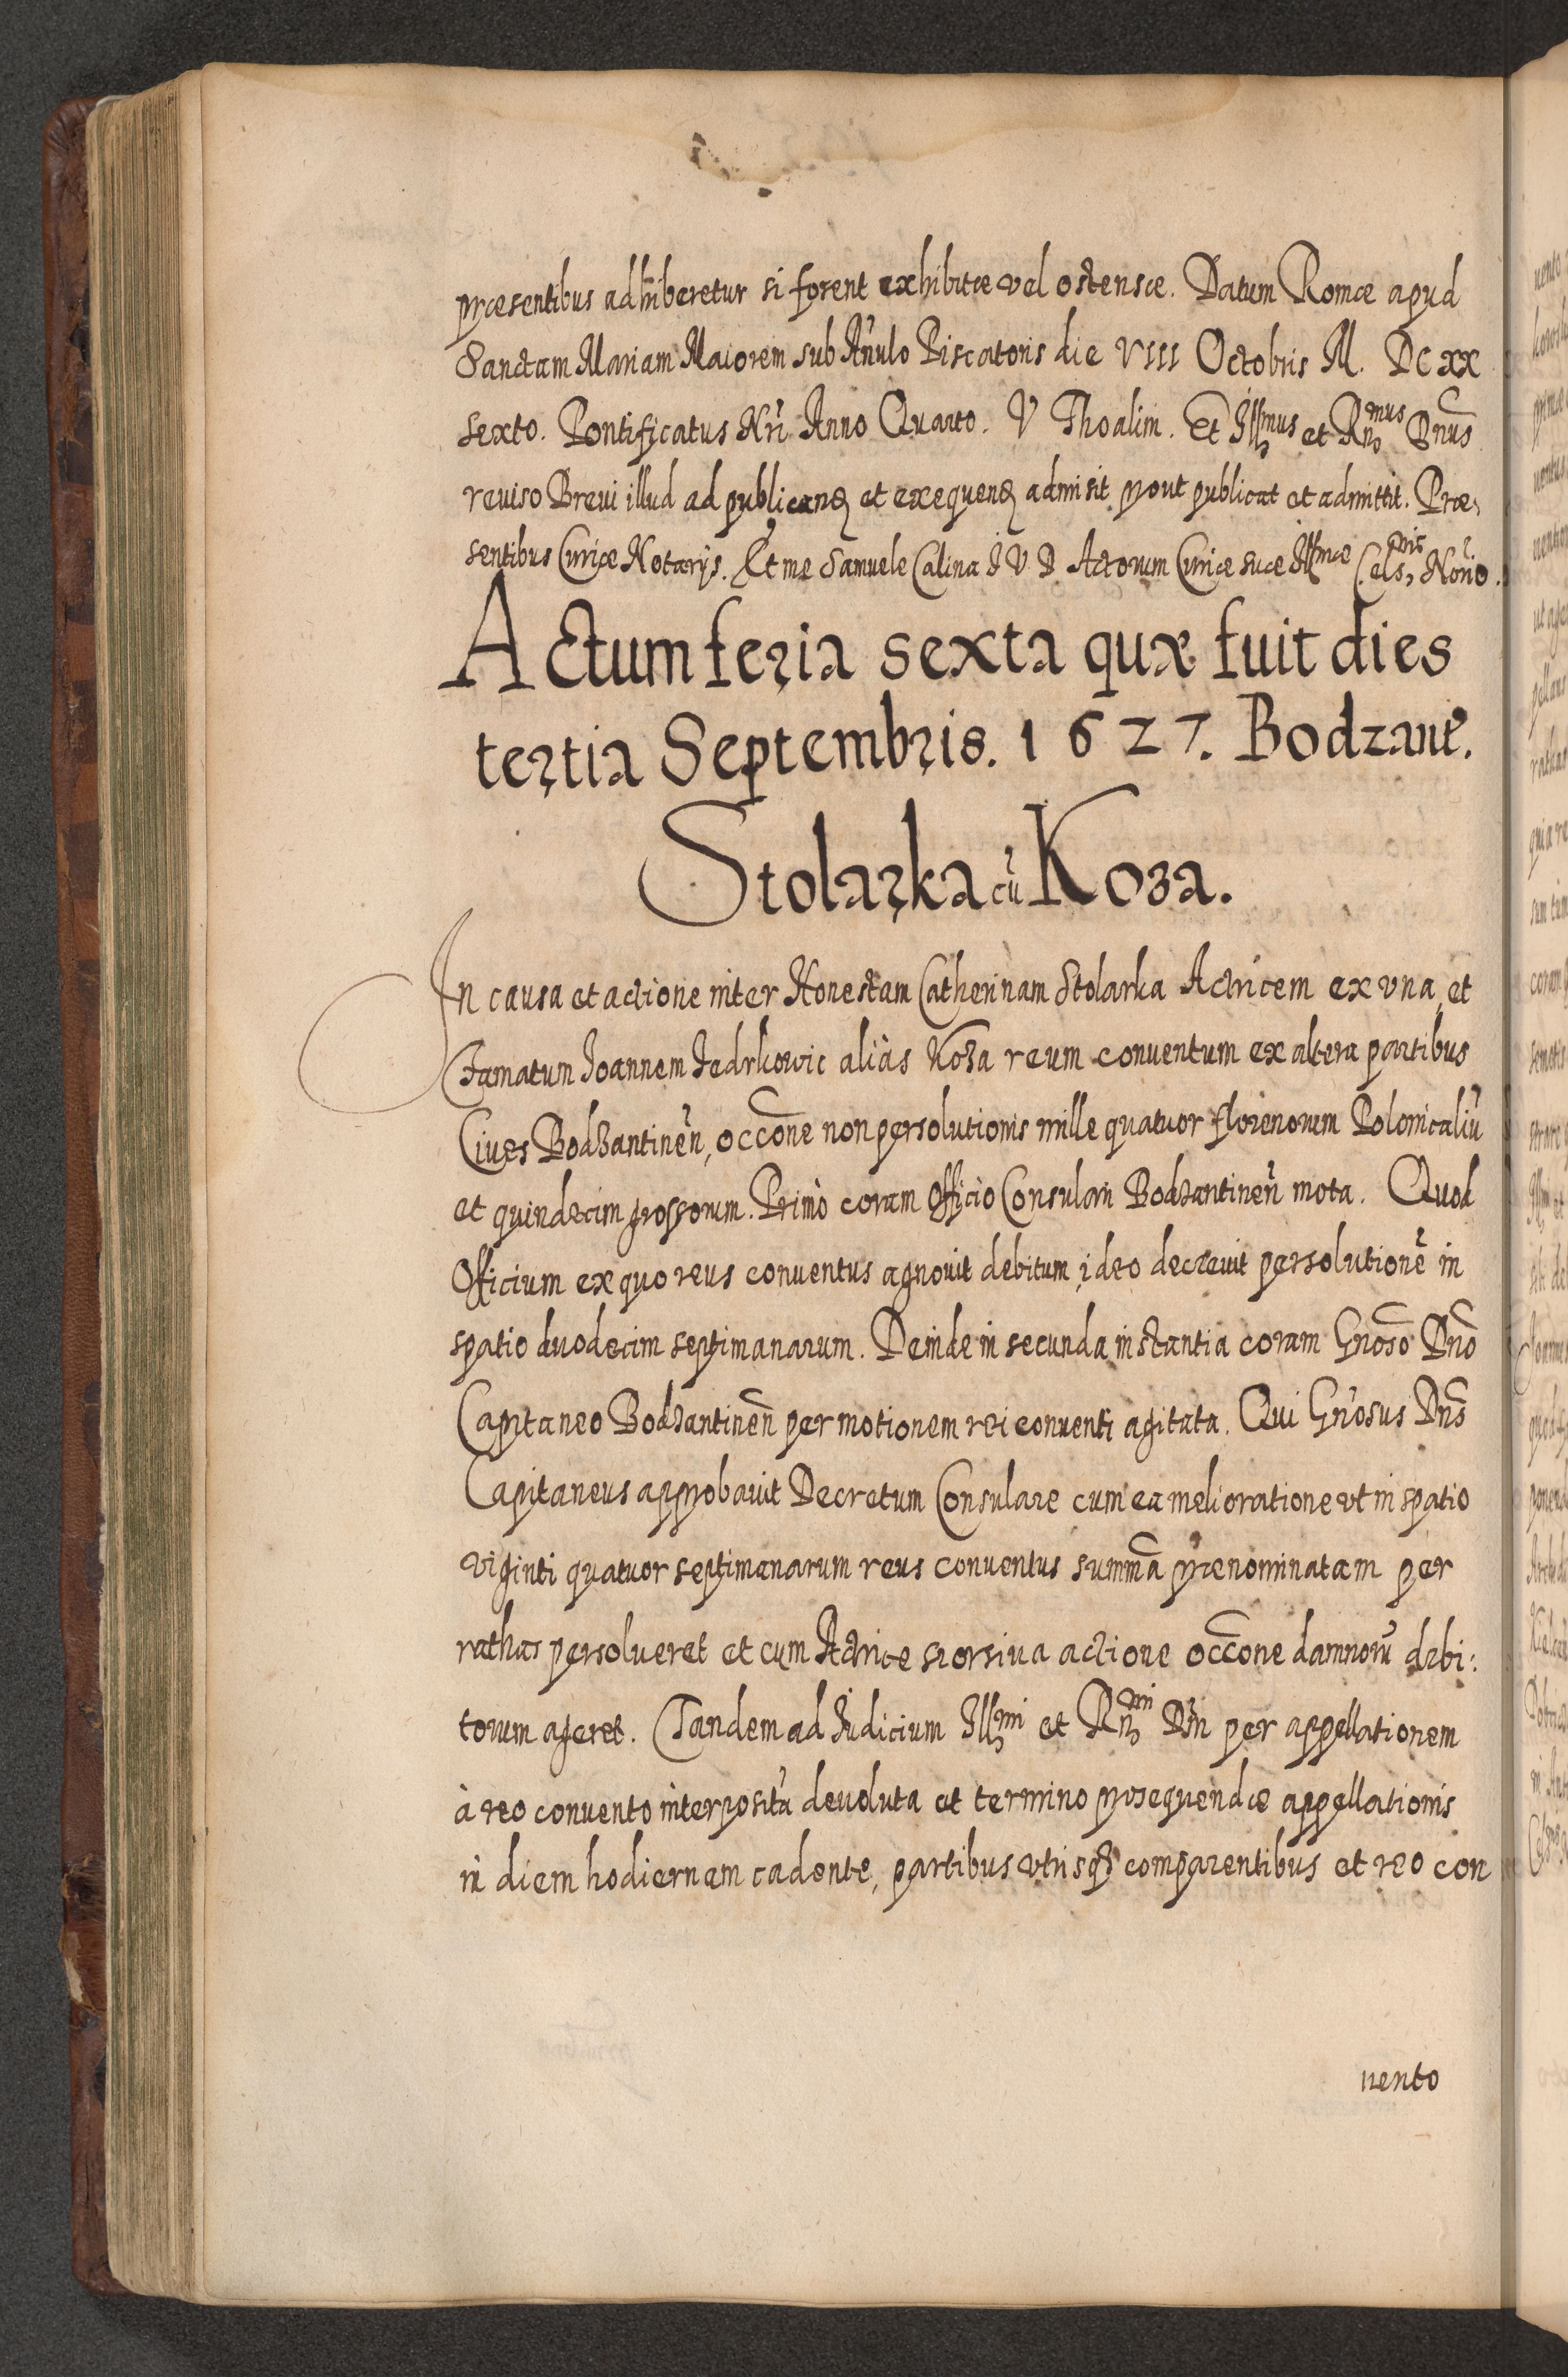 præsentibus adhiberetur si forent exhibitæ vel ostensæ. Datum Romæ apud
Sanctam Mariam Maiorem sub Añulo Piscatoris die VIII Octobris M. DC XX
sexto. Pontificatus Nri Anno Quarto. V Theatin. Et Illmus et Rnmus Dnus
reuiso Breui illud ad publicanđ et exequenđ admisit prout publicat et admittit. Præ,
sentibus Curiæ Notarijs. Et me Samuele Calina I V D Actorum Curiæ suæ Illmæ Celsnis Norio.
Actum feria sexta quæ fuit dies
tertia Septembris. 1627. Bodzant.
Stolarka cũ Koza.
In causa et actione inter Honestam Catherinam Stolarka Actricem ex vna et
Famatum Joannem Jedrkowic aliàs Koza reum conuentum ex altera partibus
Ciues Bodzantineñ, occõne non persolutionis mille quatuor florenorum Polonicaliũ
et quindecim grossorum. Primò coram Officio Consulari Bodzantineñ mota. Quod
Officium ex quo reus conuentus agnouit debitum, ideo decreuit persolutionẽ in
spatio duodecim septimanarum. Deinde in secunda instantia coram Gnoso Dno
Capitaneo Bodzantineñ per motionem rei conuenti agitata. Qui Gnosus Dns
Capitaneus approbauit Decretum Consulare cum ea melioratione vt in spatio
viginti quatuor septimanarum reus conuentus summã prænominatam per
rathas persolueret et cum Actrice seorsiua actione occõne damnorũ debi:
torum ageret. Tandem ad Iudicium Illmi et Rnmi Dni per appellationem
à reo conuento interposità deuoluta et termino prosequendæ appellationis
in diem hodiernam cadente, partibus vtrisqȝ comparentibus et reo con
uento